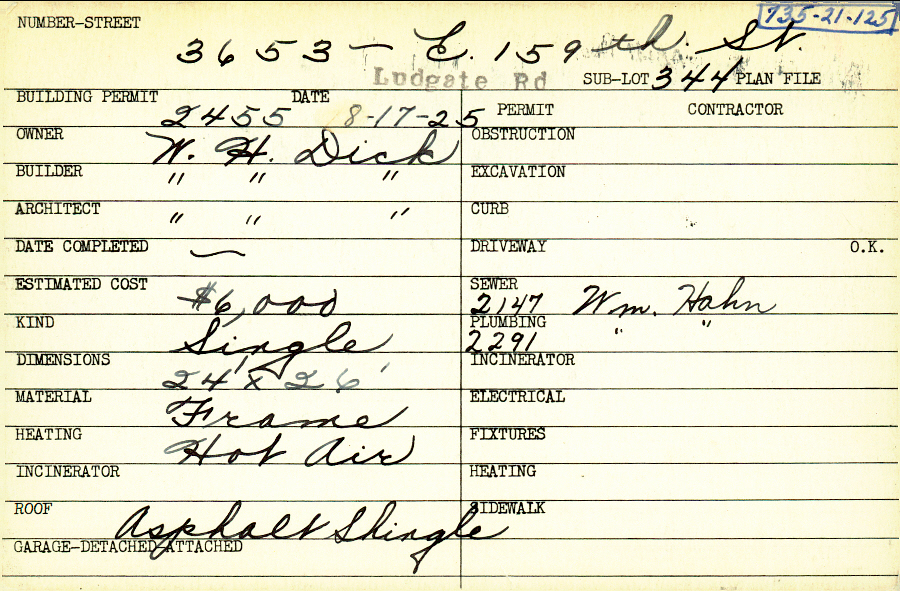 735-21-125
NUMBER-STREET 3653 - E. 159th. St.
Ludgate Rd SUB-LOT 344 PLAN FILE
BUILDING PERMIT 2455 DATE 8-17-25 PERMIT CONTRACTOR
OWNER W. H. Dick OBSTRUCTION
BUILDER " " " EXCAVATION
ARCHITECT " " " CURB
DATE COMPLETED — DRIVEWAY O.K.
ESTIMATED COST $6,000 SEWER 2147 Wm. Hahn
KIND Single PLUMBING 2291 " "
DIMENSIONS 24' x 26' INCINERATOR
MATERIAL Frame ELECTRICAL
HEATING Hot Air FIXTURES
INCINERATOR HEATING
ROOF Asphalt Shingle SIDEWALK
GARAGE-DETACHED-ATTACHED